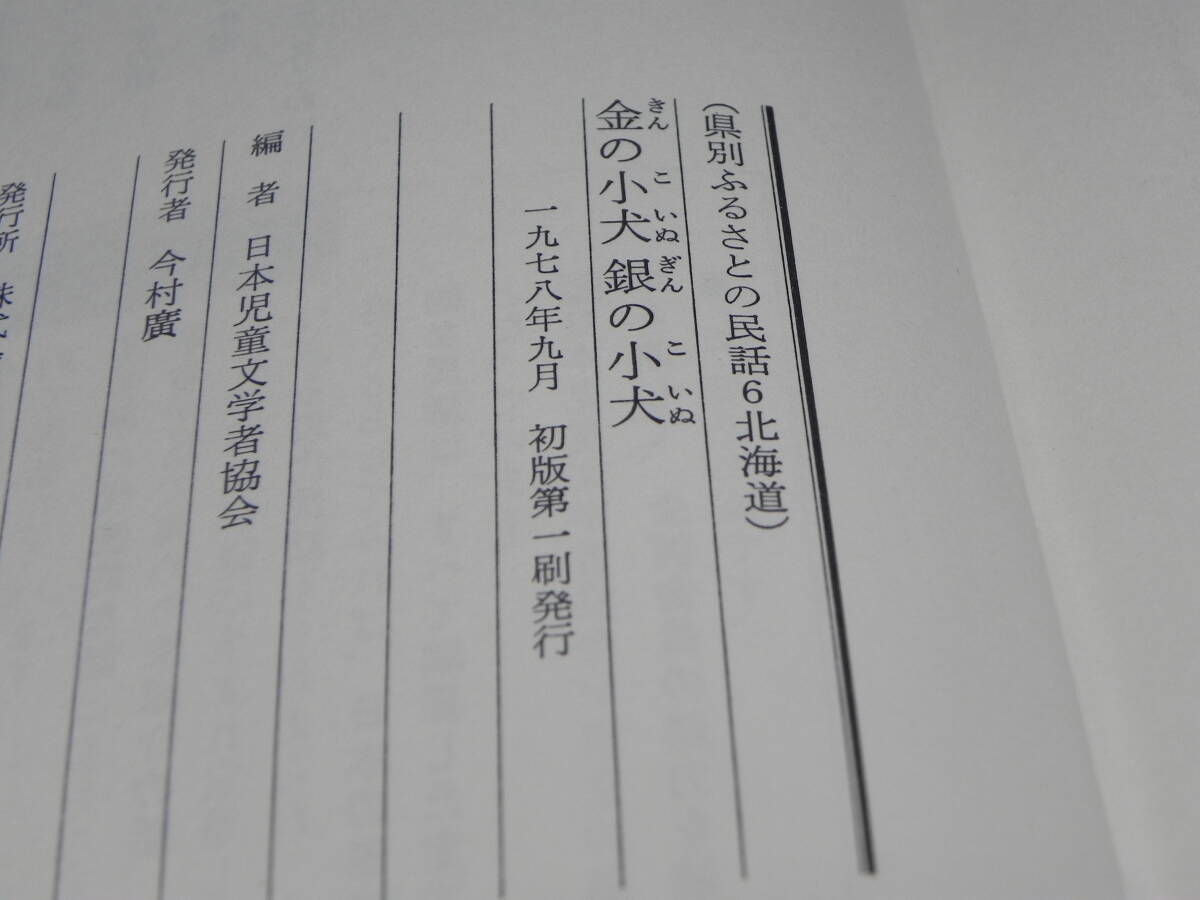 (県別ふるさとの民話6北海道)
金の小犬銀の小犬
きん こ いぬ ぎん こ いぬ
一九七八年九月 初版第一刷発行
編者 日本児童文学者協会
発行者 今村廣
発行所 株式